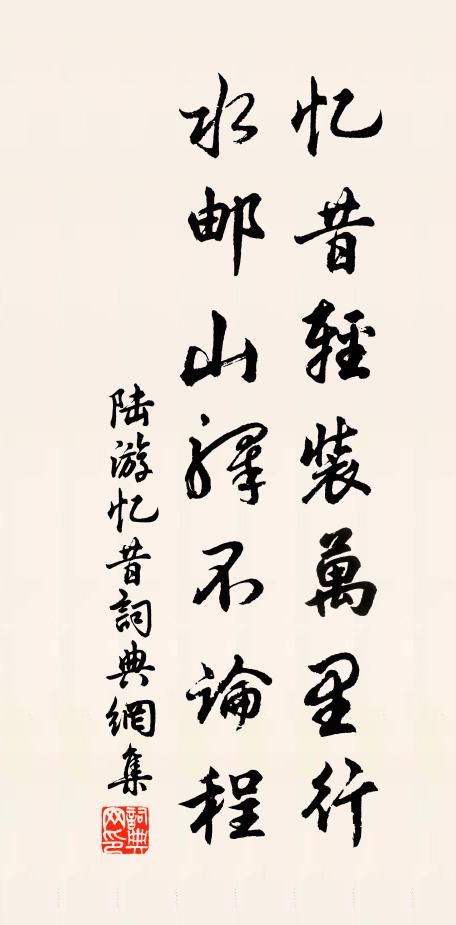 忆昔輕装萬里行
水邮山驛不論程
陆游忆昔詞典網集
詞典网印